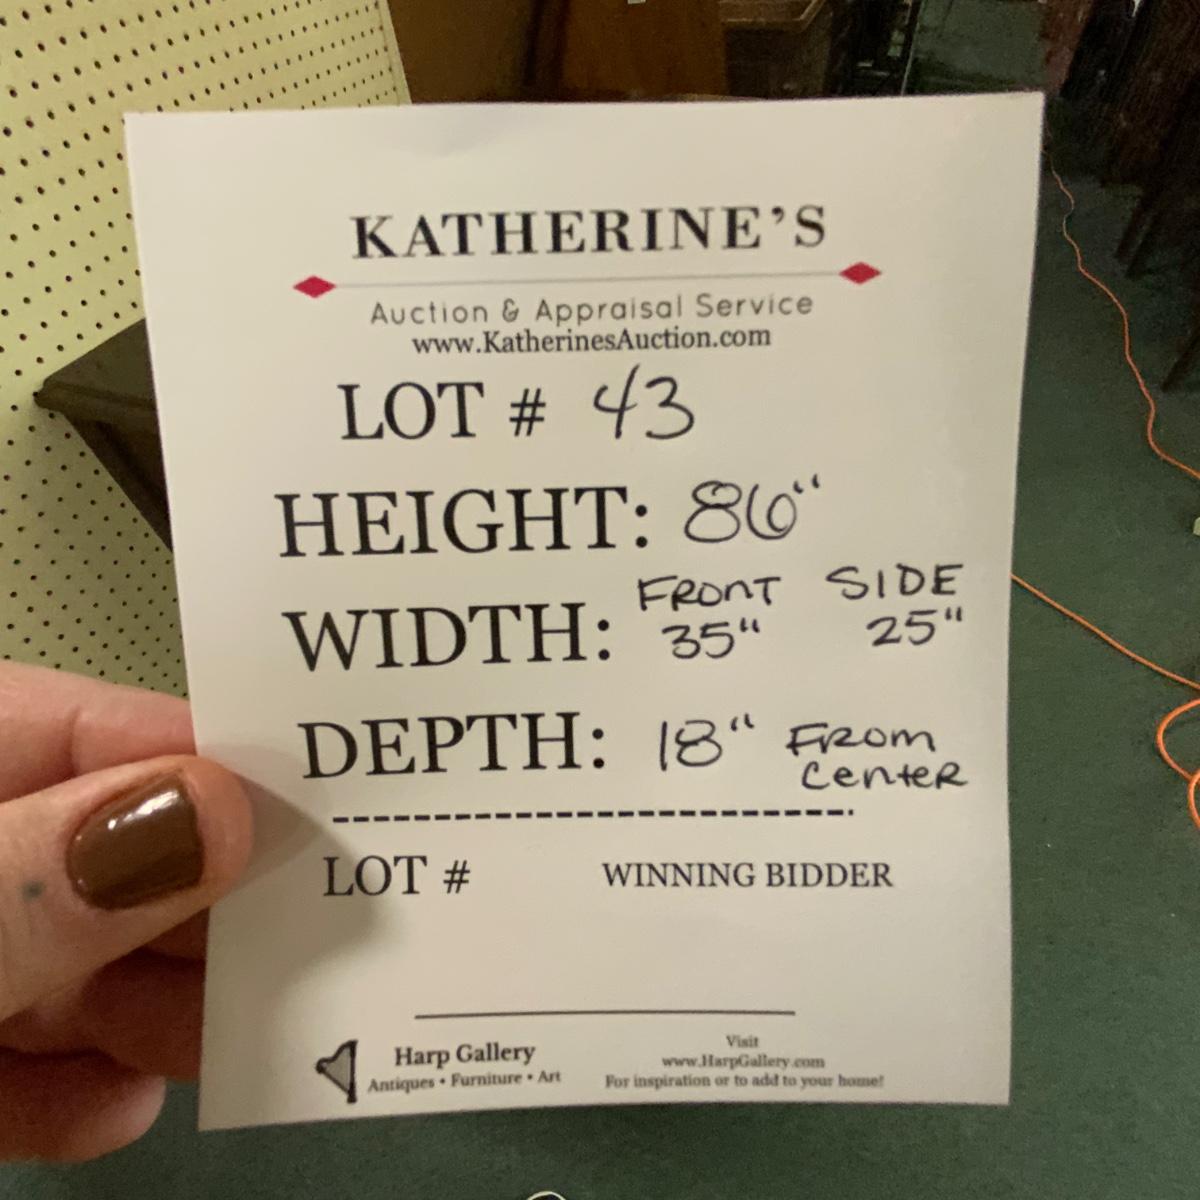 KATHERINE'S
Auction & Appraisal Service
www.KatherinesAuction.com
LOT # 43
HEIGHT: 86"
WIDTH: FRONT 35" SIDE 25"
DEPTH: 18" FROM CENTER
LOT # WINNING BIDDER
Harp Gallery
Antiques • Furniture • Art
Visit
www.HarpGallery.com
For inspiration or to add to your home!